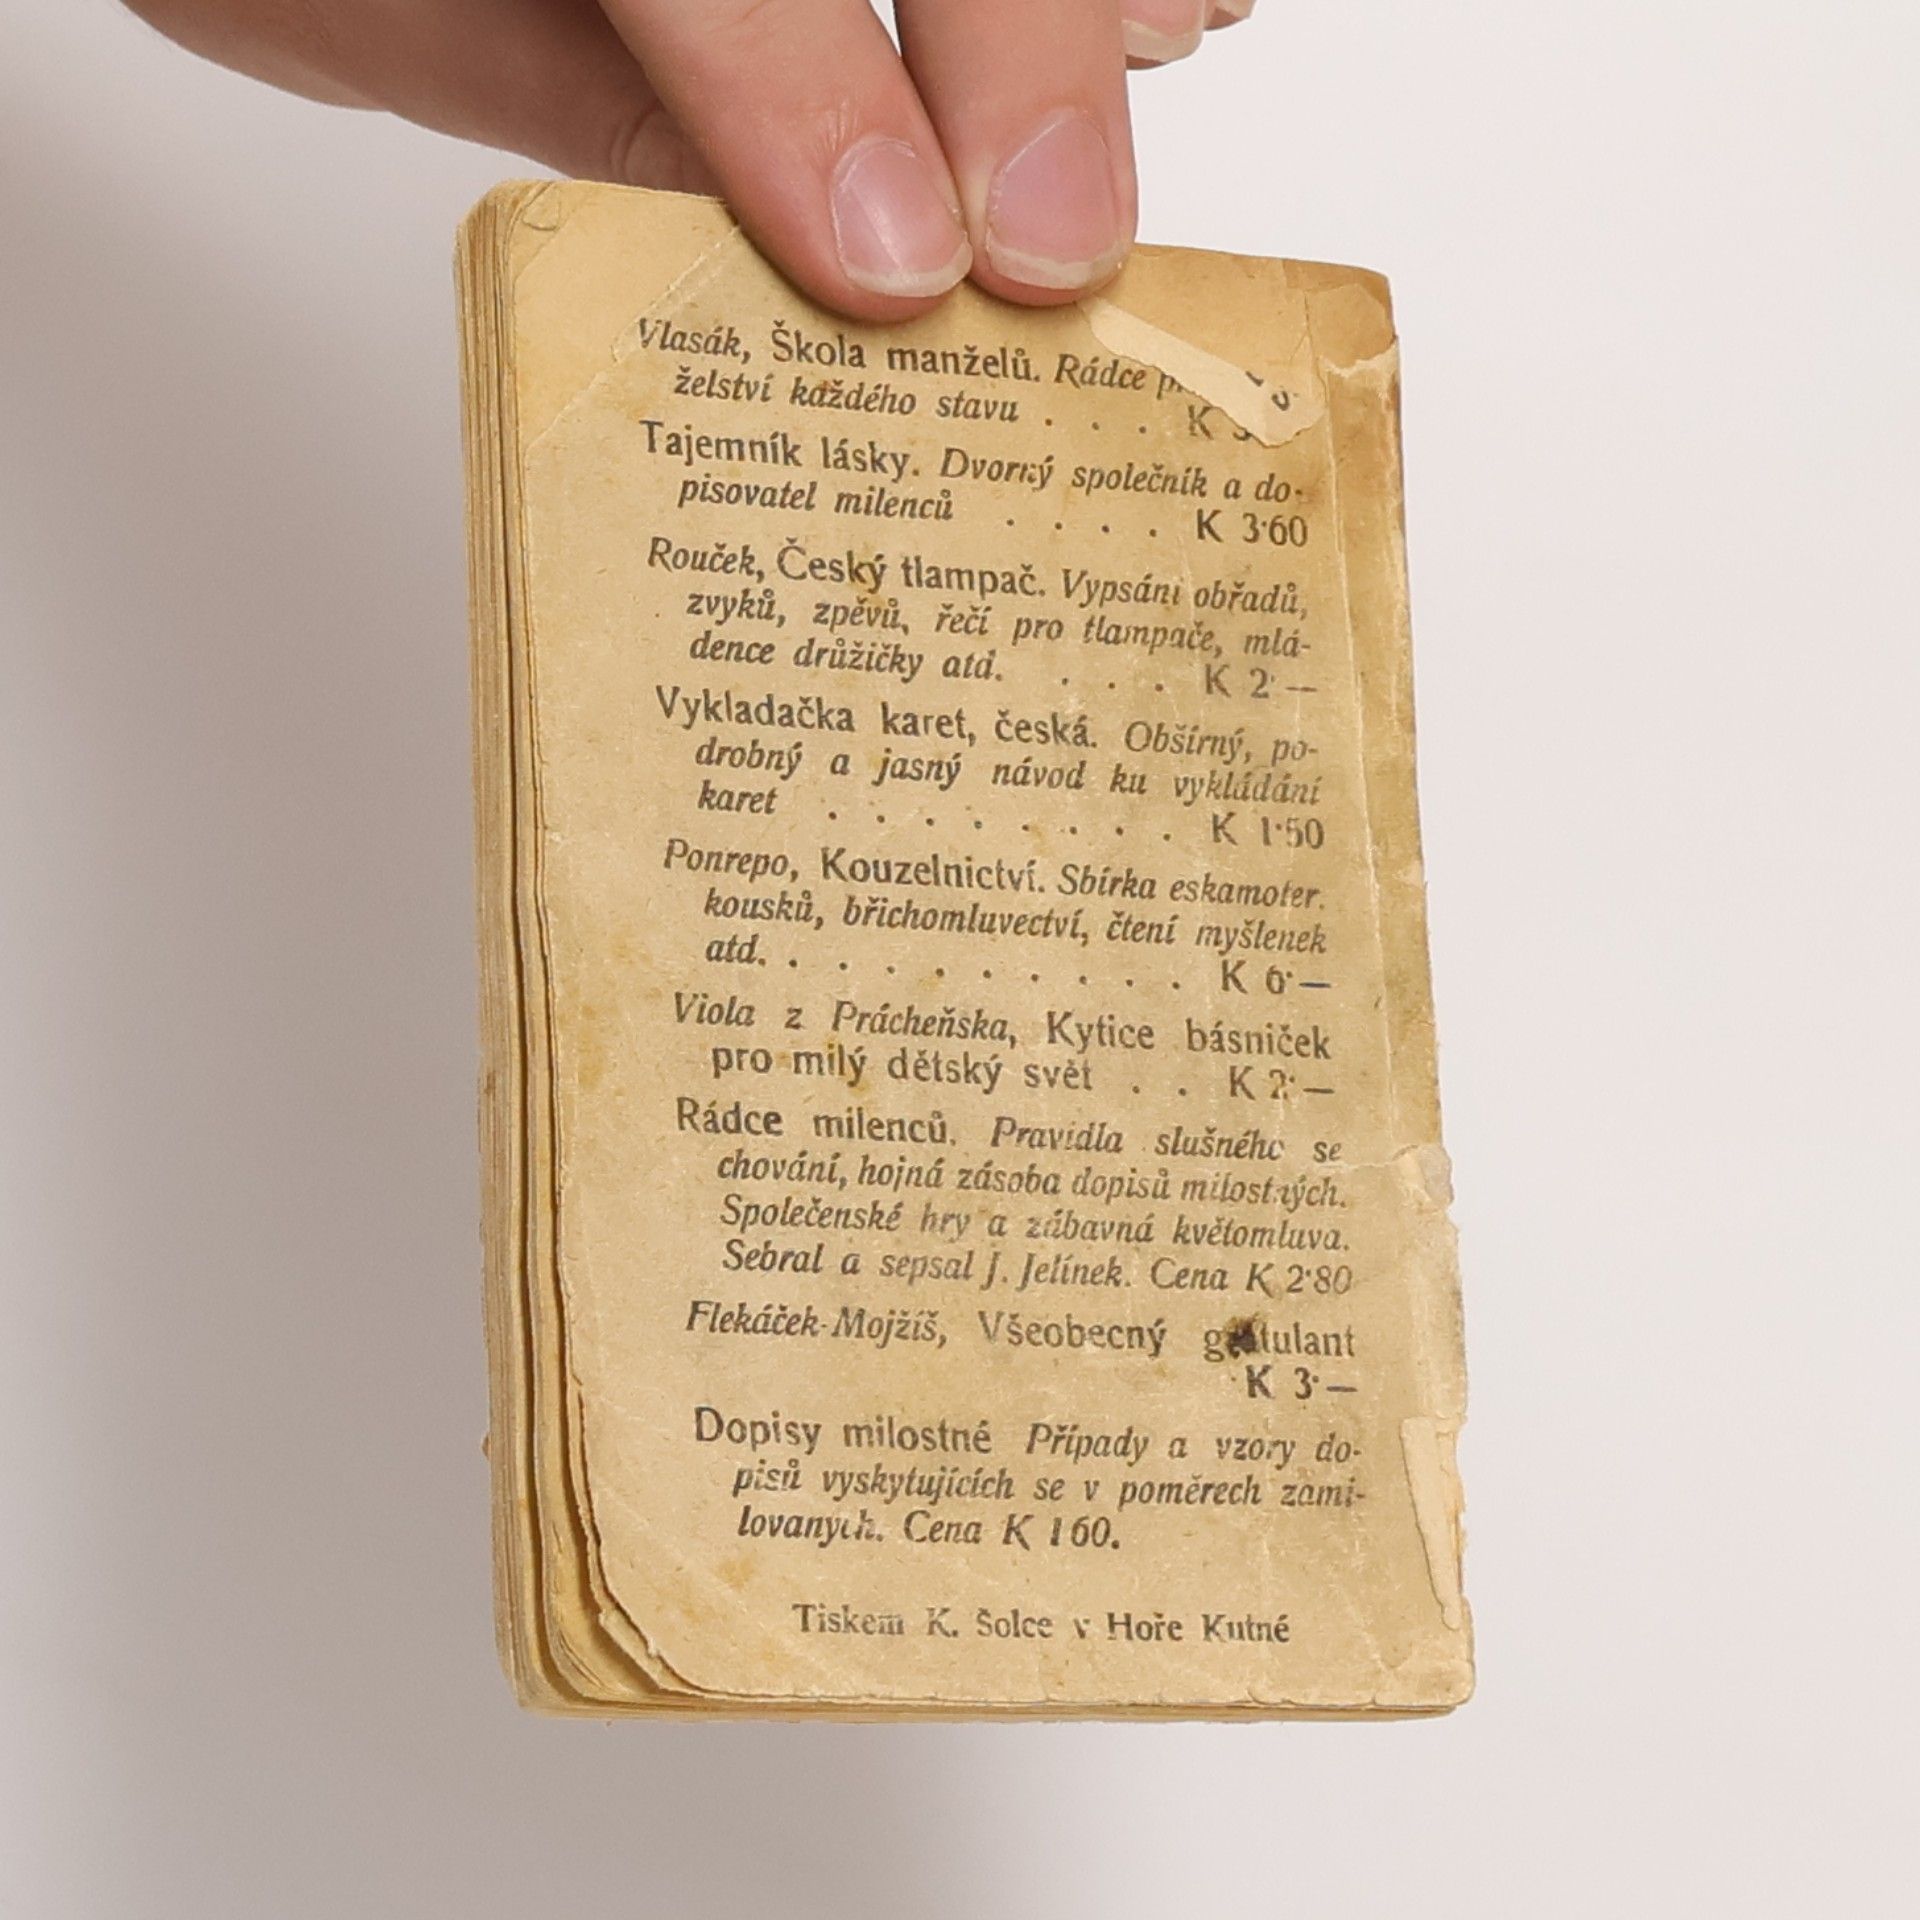 Vlasák, Škola manželů. Rádce
želství každého stavu . . . K
Tajemník lásky. Dvorný společník a do-
pisovatel milenců . . . . K 3·60
Rouček, Český tlampač. Vypsání obřadů,
zvyků, zpěvů, řečí pro tlampače, mlá-
dence drůžičky atd. . . . K 2·—
Vykladačka karet, česká. Obšírný, po-
drobný a jasný návod ku vykládání
karet . . . . . . . . K 1·50
Ponrepo, Kouzelnictví. Sbírka eskamoter.
kousků, břichomluvectví, čtení myšlenek
atd. . . . . . . . . . K 6·—
Viola z Prácheňska, Kytice básniček
pro milý dětský svět . . K 2·—
Rádce milenců. Pravidla slušného se
chování, hojná zásoba dopisů milostných.
Společenské hry a zábavná květomluva.
Sebral a sepsal J. Jelínek. Cena K 2·80
Flekáček-Mojžíš, Všeobecný gratulant
K 3·—
Dopisy milostné Případy a vzory do-
pisů vyskytujících se v poměrech zami-
lovaných. Cena K 1 60.
Tiskem K. Šolce v Hoře Kutné